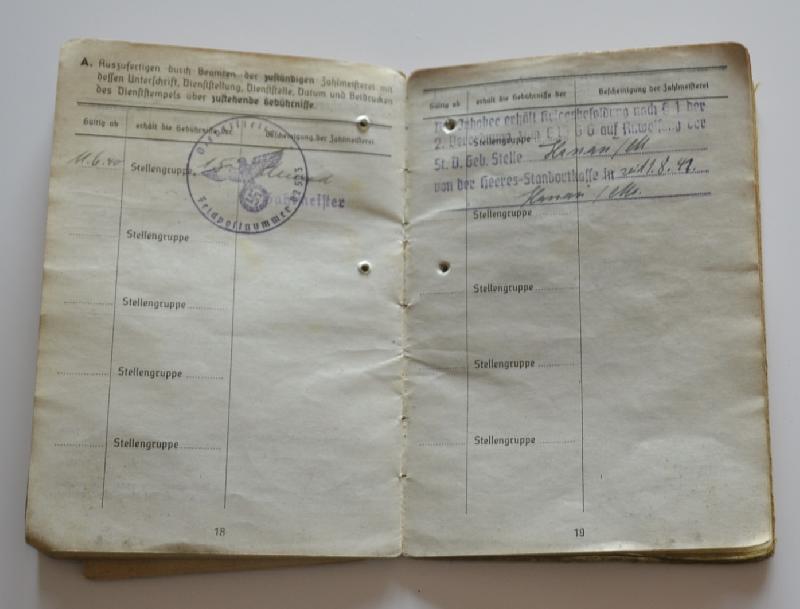 A. Auszufertigen durch Beamten der zuständigen Zahlmeisterei mit
dessen Unterschrift, Dienststellung, Dienststelle, Datum und Beidrucken
des Dienststempels über zustehende Gebührnisse.
Gültig ab erhält die Gebührnisse der Bescheinigung der Zahlmeisterei
11.6.40 Stellengruppe 15
Feldpostnummer
Zahlmeister
Stellengruppe
Stellengruppe
Stellengruppe
Stellengruppe
18
Gültig ab erhält die Gebührnisse der Bescheinigung der Zahlmeisterei
erhält Kriegsbesoldung nach § 1 der
2. auf Anweisung der
Stellengruppe
St. D. Geb. Stelle Hanau/M
von der Heeres-Standortkasse in seit 1.8.41.
Hanau/M.
Stellengruppe
Stellengruppe
Stellengruppe
Stellengruppe
19